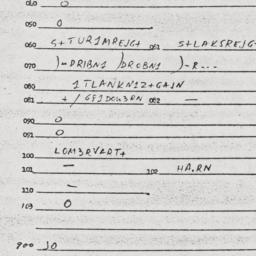 050 0
060 S+TUR1MREJG+ 061 S+LAKSREJG
070 )-DRIBN1 )DROBN1 )-R---
080 1TLANKN1Z+GAJN
081 082 —
090 0
091 0
100 LOM3RVART+
101 — 102 HA.RN
110 —
103 0
900 JO